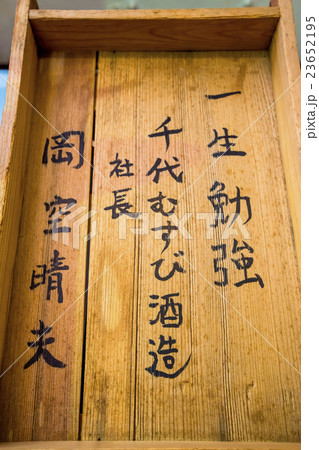 一生勉強
千代むすび酒造
社長
岡空晴夫
pixta.jp - 23652195